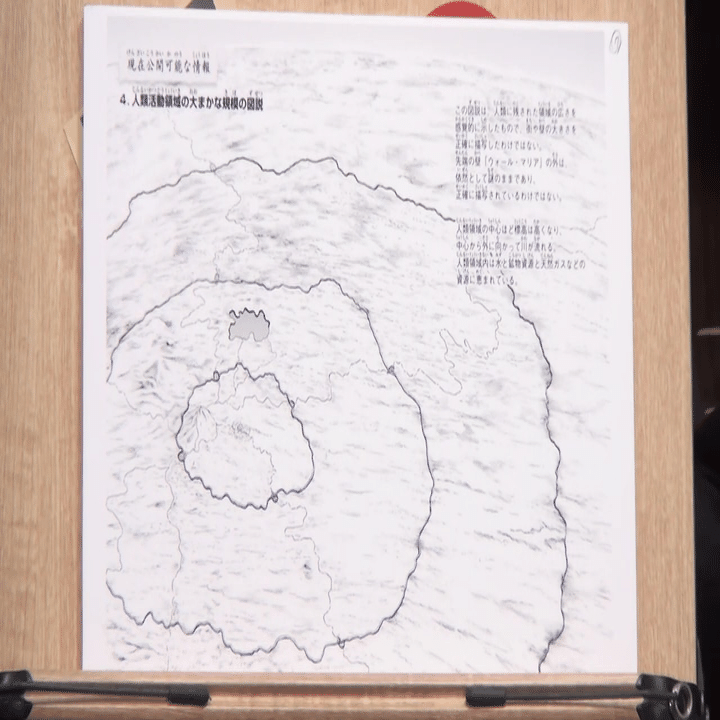 現在公開可能な情報
4. 人類活動領域の大まかな規模の図説
この図説は、人類に残された領域の広さを
感覚的に示したもので、街や壁の大きさを
正確に描写したわけではない。
先端の壁「ウォール・マリア」の外は、
依然として謎のままであり、
正確に描写されているわけではない。
人類領域の中心ほど標高は高くなり、
中心から外に向かって川が流れる。
人類領域内は水と鉱物資源と天然ガスなどの
資源に恵まれている。